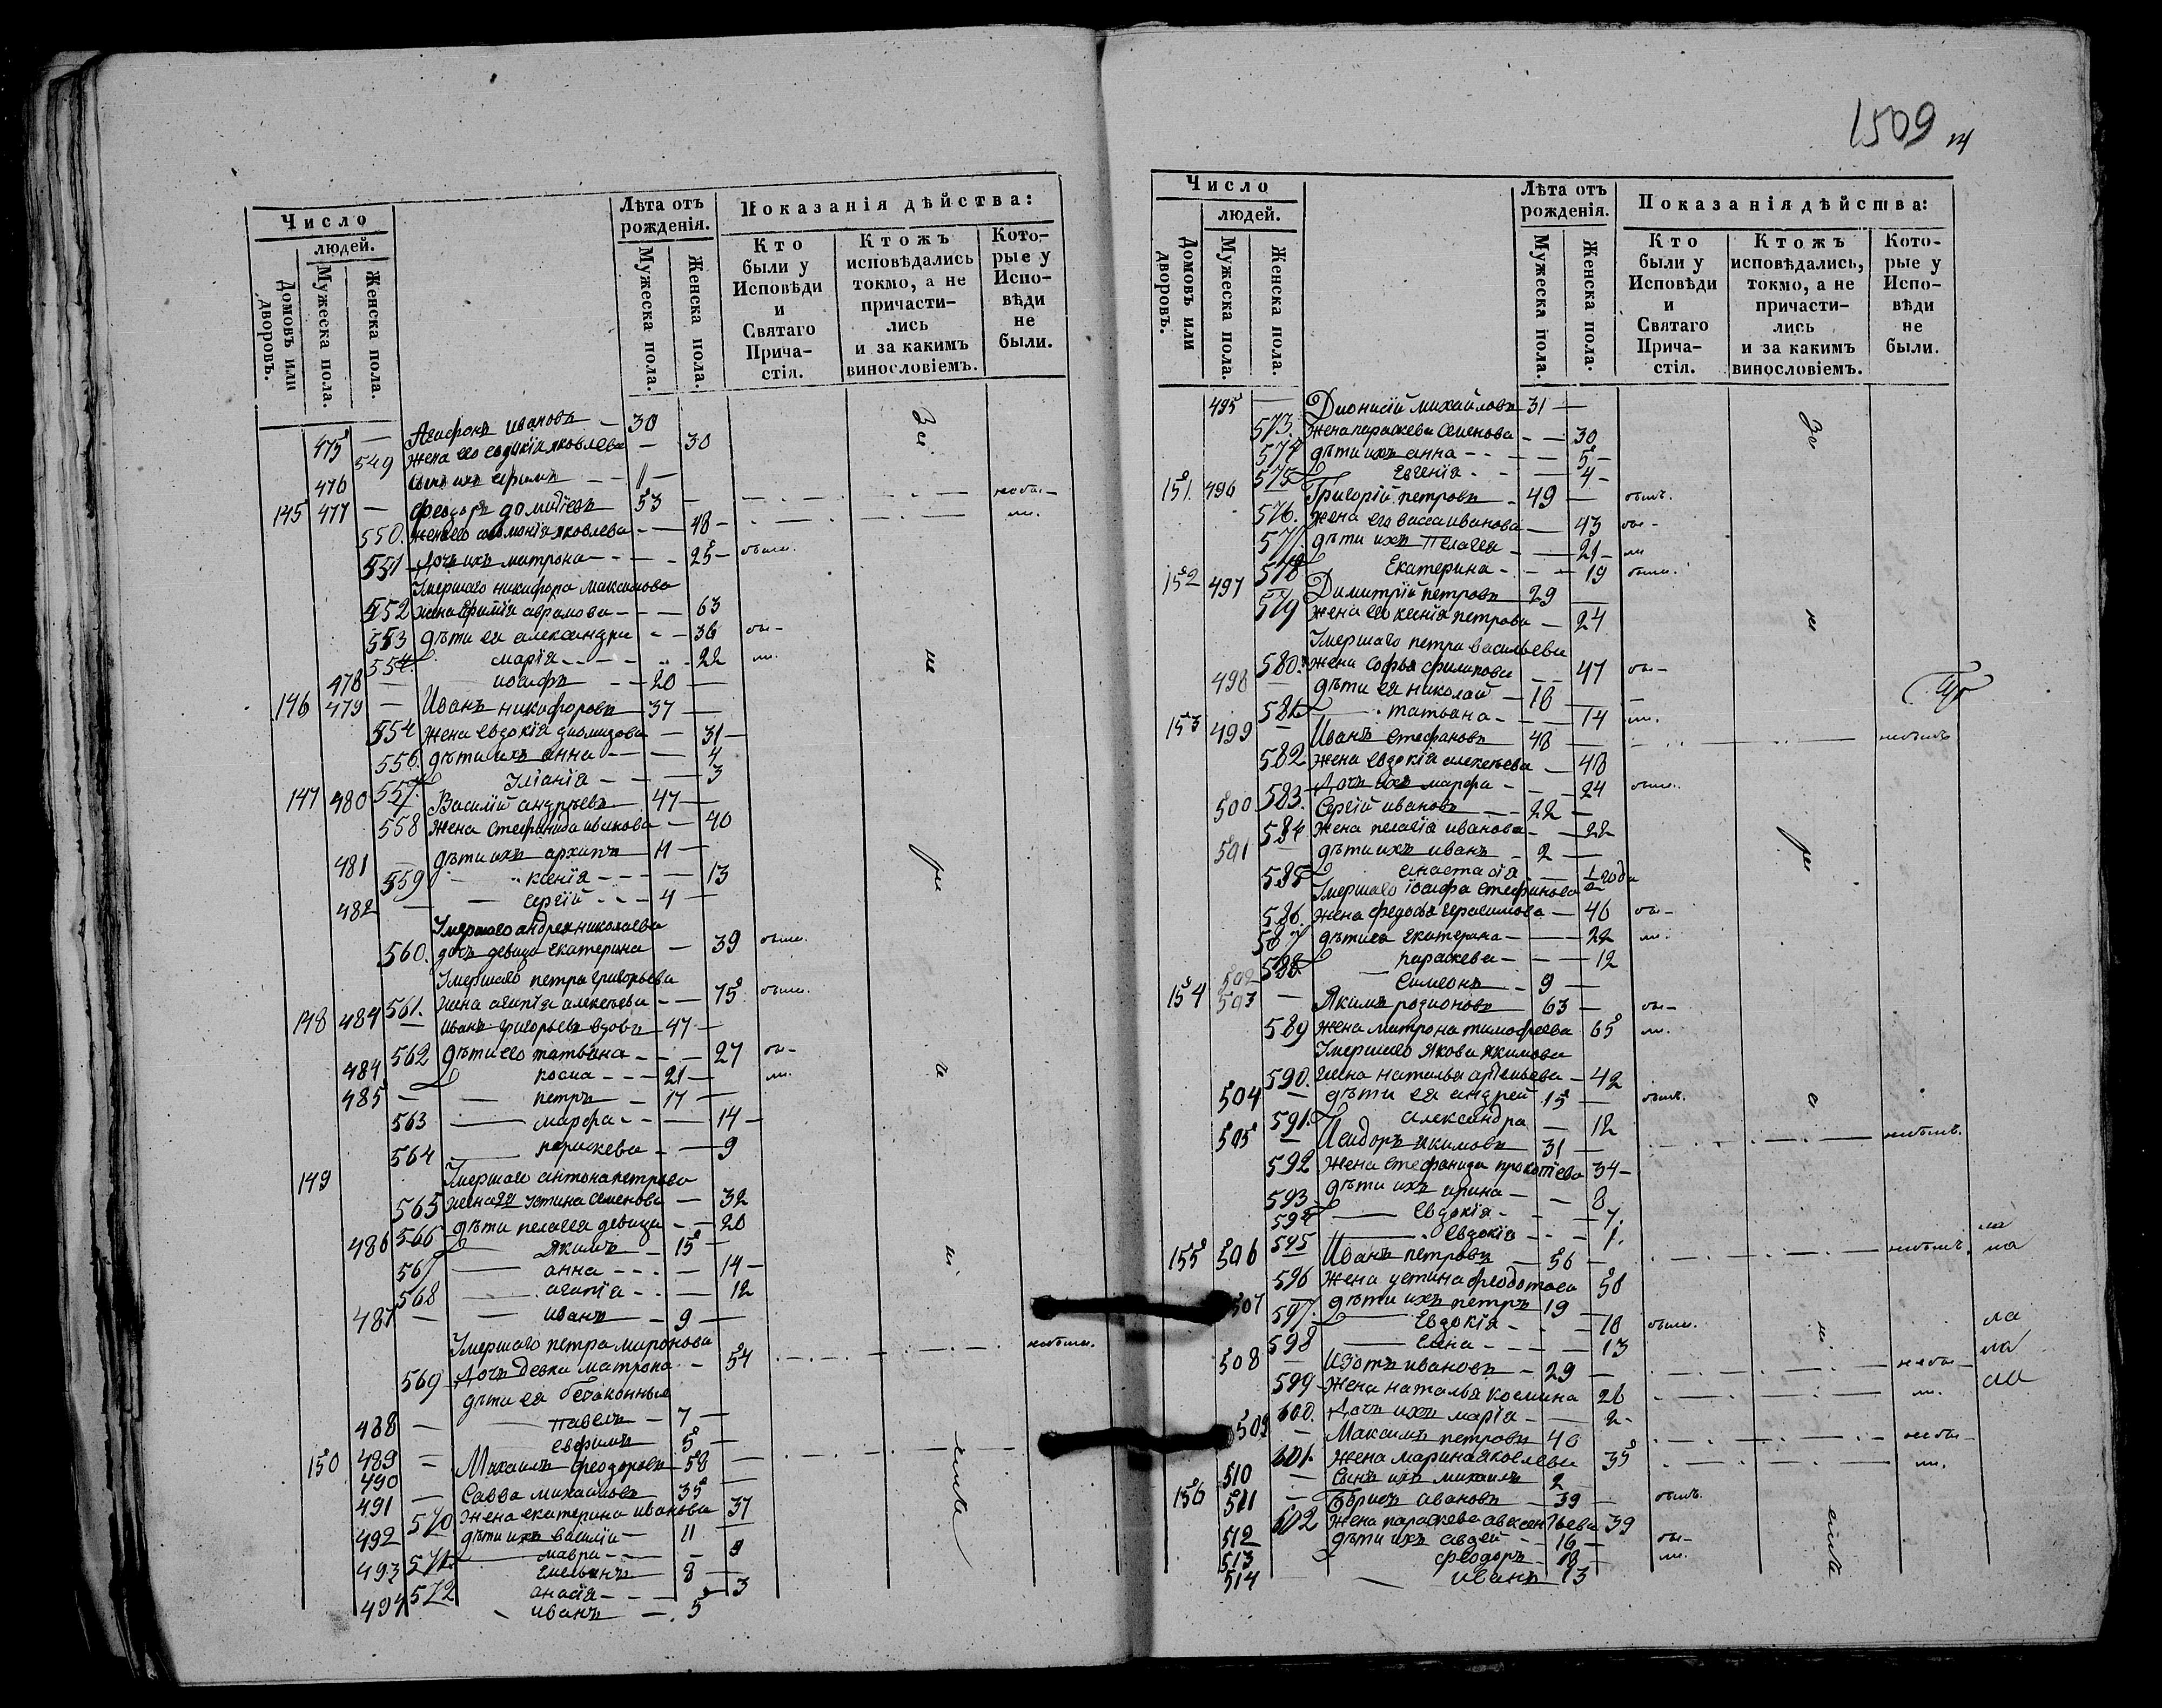 1509
Число
людей.
Домовъ или дворовъ.
Мужеска пола.
Женска пола.
Лѣта отъ рожденія.
Мужеска пола.
Женска пола.
Показанія дѣйства:
Кто были у Исповѣди и Святаго Прича- стія.
Ктожъ исповѣдались токмо, а не причасти- лись и за какимъ винословіемъ.
Кото- рые у Испо- вѣди не были.
475 — Агафонъ Ивановъ — 30
549 Жена его Евдокія Яковлева — 30
476 Сынъ ихъ Ефимъ — 11 —
145 477 — Феодоръ 53 —
550. Жена его Яковлева — 48 —
551 Дочь ихъ Матрона — 25 — были.
Умершаго Никифора Максимова
552 Жена Аврамова — 63
553 Дѣти ея Александра — 36 бы-
554 Марія — 22 ли.
478 — Іосифъ — 20 —
146 479 — Иванъ Никифоровъ 37 —
554 Жена Евдокія Диомидова — 31 —
556. Дѣти ихъ Анна — 4
557. Уліанія — 3
147 480 — Василій Андрѣевъ 47 —
558 Жена Стефанида Ивановa — 40
481 Дѣти ихъ Архипъ 11 —
559 Ксенія — 13
482 — Сергій — 4 —
Умершаго Андрея Николаева
560. дочь девица Екатерина — 39 были.
Умершаго Петра Григорьева
561. Жена Агапія Алексѣева — 75 были.
148 484 — Иванъ Григорьевъ вдовъ 47 —
562 Дѣти его Татьяна — 27 бы-
484 Косма — 21 — ли.
485 — Петръ — 17 —
563 Марфа — 14 —
564 Параскева — 9
149 Умершаго Антона Петрова
565 Жена ея Устина Семенова — 32
566 Дѣти Пелагея девица — 20
486 Якимъ — 15 —
567 Анна — 14 —
568 Агапія — 12
487 — Иванъ — 9 —
Умершаго Петра Миронова
569 Дочь Девка Матрона — 54 небыли.
Дѣти ея безаконные
488 — Павелъ — 7 —
489 Евфимъ 5 —
150 490 — Михаилъ Феодоровъ 58 —
491 — Савва Михайловъ 35 —
570 Жена Екатерина Иванова 37
492 Дѣти ихъ Василій — 11 —
571 Мавра —
493 Емельянъ 8 —
572 3
494 Иванъ — 5
Число
людей.
Домовъ или дворовъ.
Мужеска пола.
Женска пола.
Лѣта отъ рожденія.
Мужеска пола.
Женска пола.
Показанія дѣйства:
Кто были у Исповѣди и Святаго Прича- стія.
Ктожъ исповѣдались, токмо, а не причасти- лись и за какимъ винословіемъ.
Кото- рые у Испо- вѣди не были.
495 — Дионисій Михайловъ 31 —
573. Жена Параскева Семенова — 30
574 Дѣти ихъ Анна — 5 —
575 Евгенія — 4 —
151. 496 Григорій Петровъ — 49 — былъ.
576. Жена его Васса Иванова — 43 бы-
577. Дѣти ихъ Пелагея — 21 — ли
578 Екатерина — 19 были.
152 497 Димитрій Петровъ 29 —
579 Жена его Ксенія Петрова — 24
Умершаго Петра Васильева
580. Жена Софья Филипова — 47 бы-
498 Дѣти ея Николай — 18 —
581 Татьяна — 14 ли.
153 499 — Иванъ Стефановъ 48 — небылъ
582 Жена Евдокія Алексѣева — 48
583. Дочь ихъ Марфа — 24 были.
500 Сергій Ивановъ — 22 —
584 Жена Пелагія Иванова — 22
501 — Дѣти ихъ Иванъ — 2 —
585 Анастасія — ½ года
Умершаго Іосифа Стефанова
586. Жена Федосья Герасимова — 46 бы-
587 Дѣти ея Екатерина — 22 ли.
588 Параскева — 12
502 Симеонъ — 9 —
154 503 — Якимъ Родионовъ 63 — бы-
589 Жена Матрона Тимофеева 65 ли.
Умершаго Якова Якимова
590. Жена Наталья Арсеньева — 42
504 — Дѣти ея Андрей 15 — былъ.
591. Александра — 12
505 — Исидоръ Якимовъ 31 — небылъ.
592. Жена Стефанида Прокопіева 34 —
593 Дѣти ихъ Ирина — 8
594 Евдокія — 7.
595 Евдокія — 1.
155 506 Иванъ Петровъ — 56 — небылъ.
596 Жена Устина Феодотова 58
507 Дѣти ихъ Петръ 19 —
597. Евдокія — 18 были.
598 Елена — 13
508 — Изотъ Ивановъ — 29 — небы-
599 Жена Наталья Космина 26 ли.
600. Дочь ихъ Марія — 2 —
509 — Максимъ Петровъ 40 небы-
601. Жена Марина Яковлева 35 ли.
510 — Сынъ ихъ Михаилъ 2 —
156 511 — Борисъ Ивановъ — 39 — былъ.
602 Жена Параскева Авксентьева 39
512 Дѣти ихъ Авдей — 16 — бы-
513 Феодоръ — 18 — ли.
514 Иванъ 13